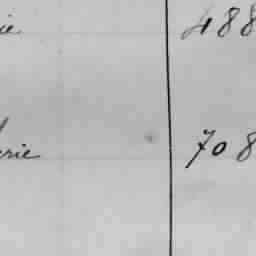 ie 488
erie 708